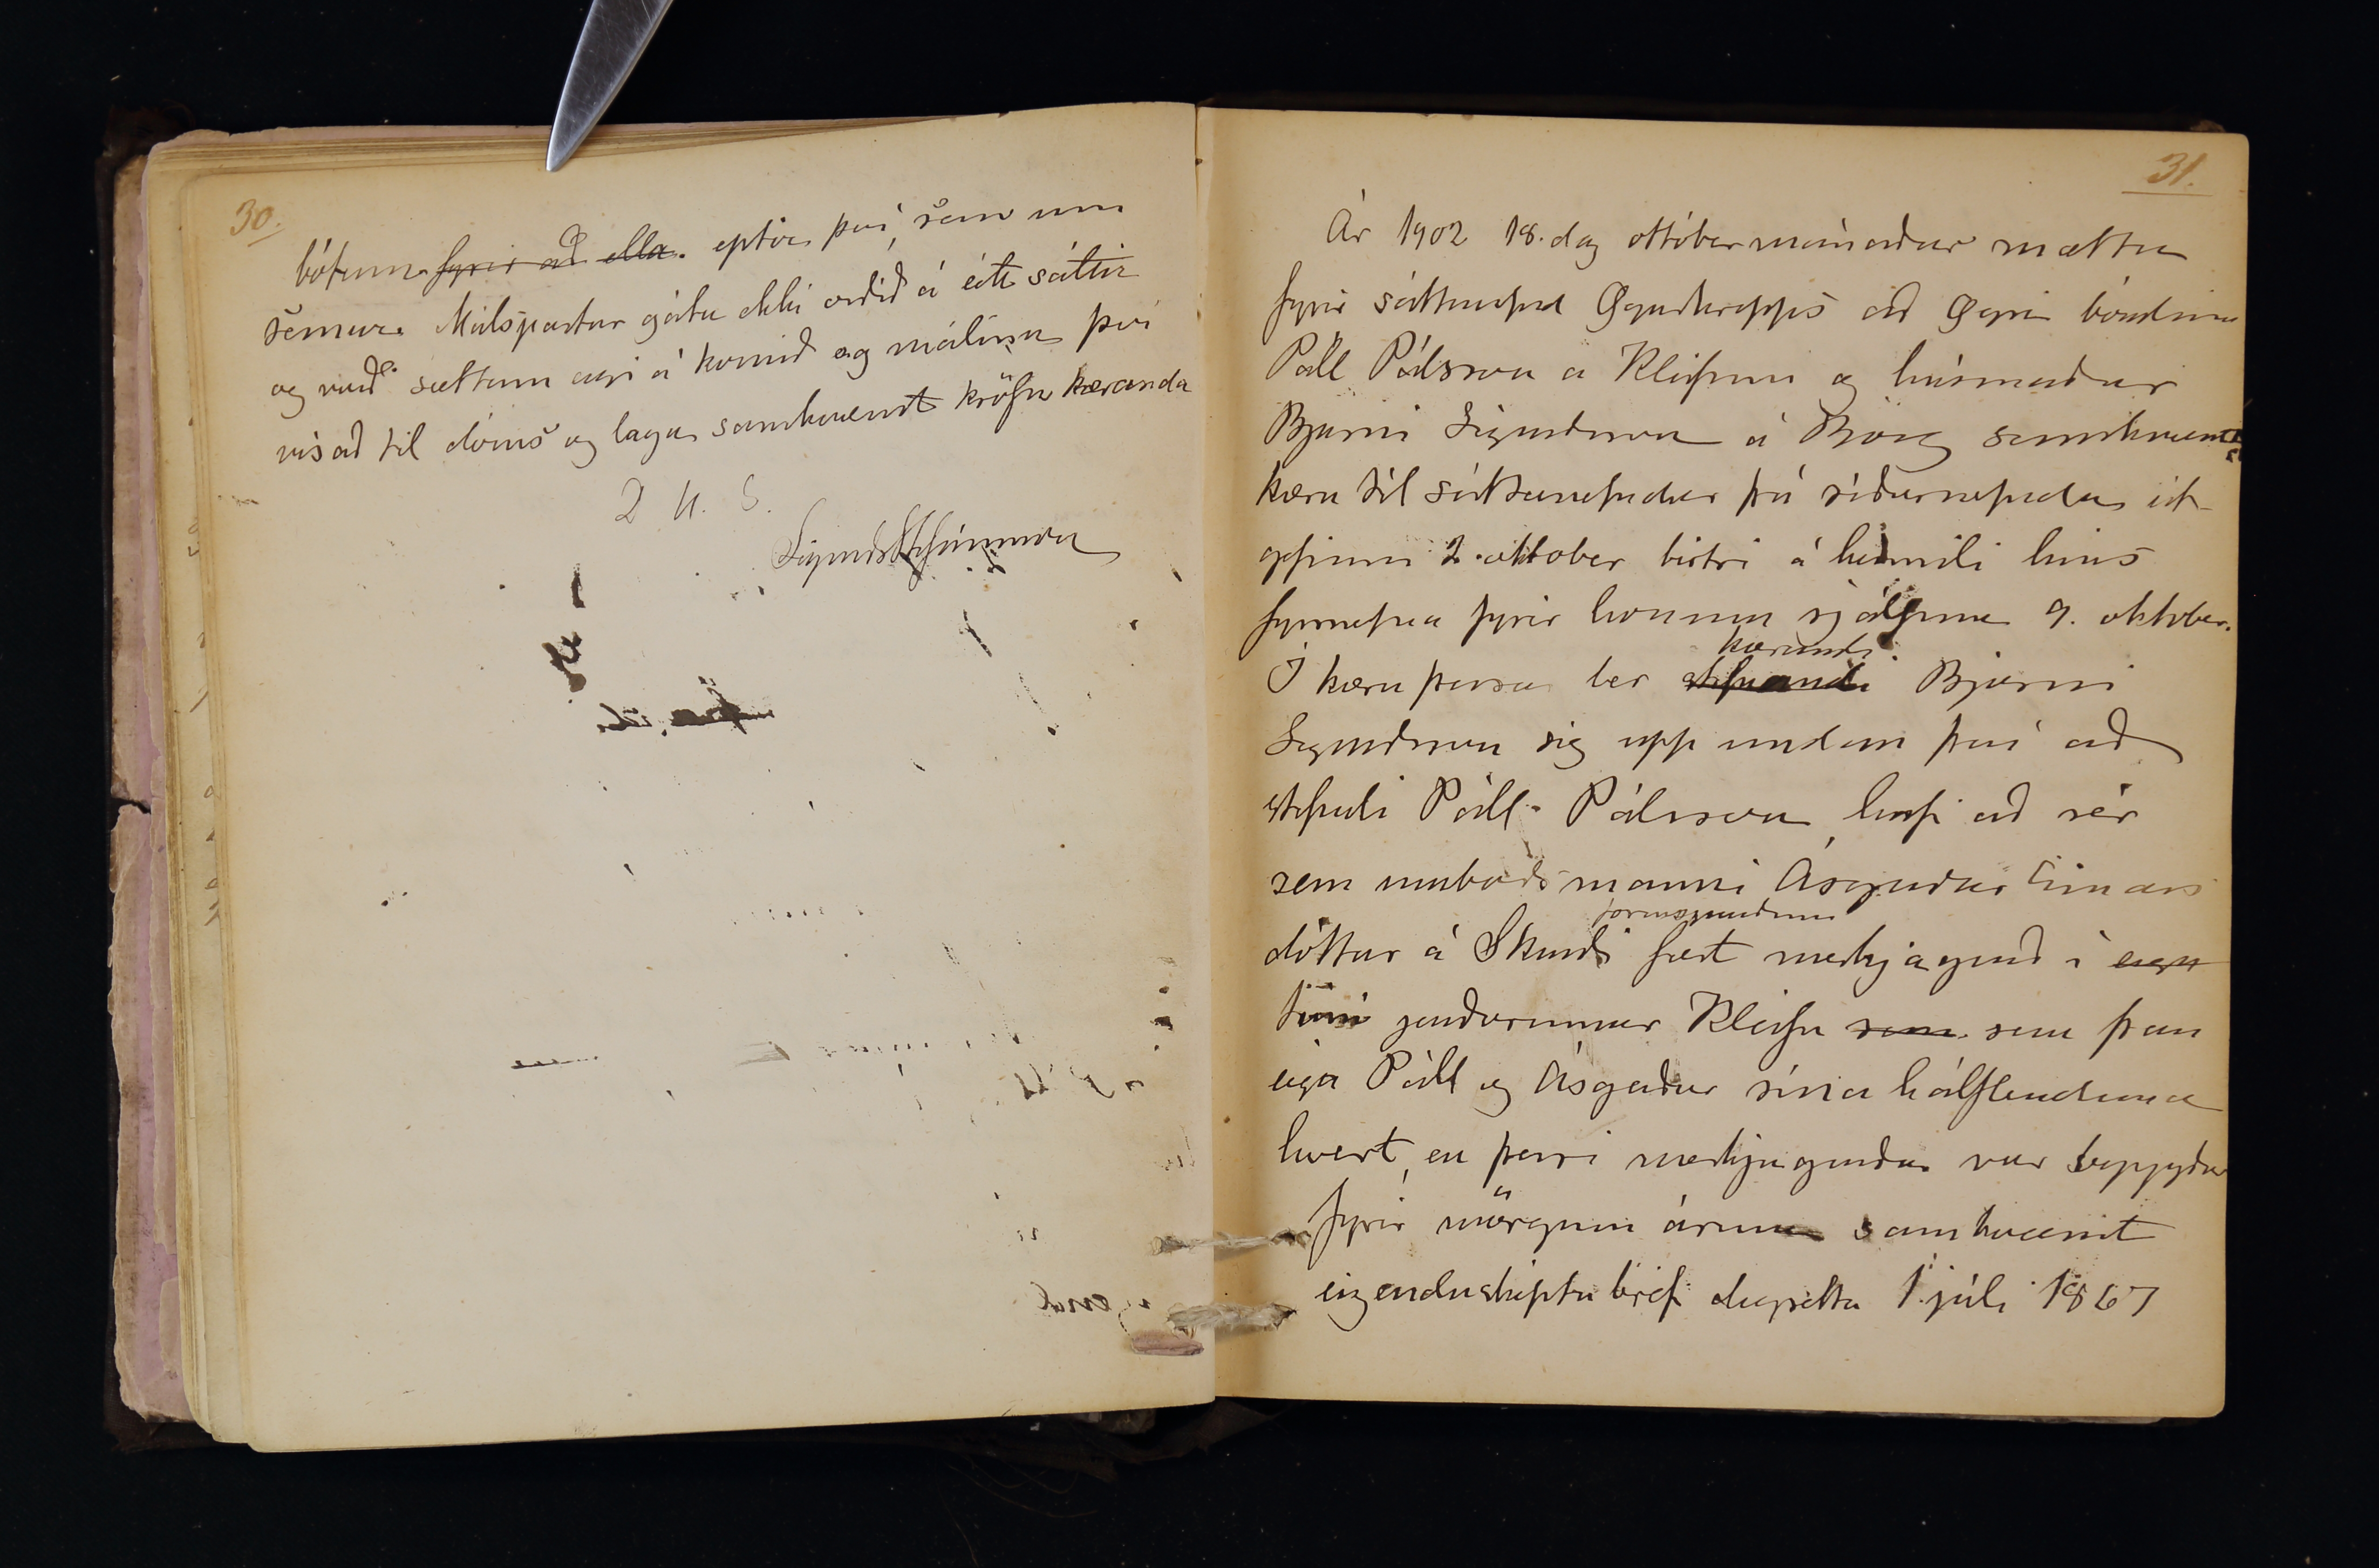 30.
bótum fyrir að ella. eptir því, sem um
semur. Málspartar gátu ekki orðið á eitt sáttir
og varð sættum eigi á komið og málinu því
vísað til dóms og laga samkvæmt kröfu kæranda
D u. S.
31.
Ár 1902 18. dag októbermánaðar mættu
fyrir sáttanefnd Eyrarhrepps að Eyri bóndinn
Páll Pálsson á Kleifum og húsmaður
Bjarni Sigurðsson á Borg samkvæmt
kæru til sáttanefndar frá síðarnefndum út
gefinni 2. oktober birtri á heimili hins
fyrnefna fyrir honum sjálfum 9. oktober.
kærandi
Í kæru þessa ber stefnandi Bjarni
Sigurðsson sig upp undan því að
stefndi Páll Pálsson, hafi að sér
sem umboðsmanni Ásgerðar Einars
fornspurðum
dóttur á Skarði fært merkjagarð í eign
túni jarðarinnar Kleifa sem sem þau
eiga Páll og Ásgerður sína hálflenduna
hvert, en þessi merkjagarður var byggður
fyrir mörgum árum samkvæmt
eigendaskiptabréfi dagsettu 1. júlí 1867